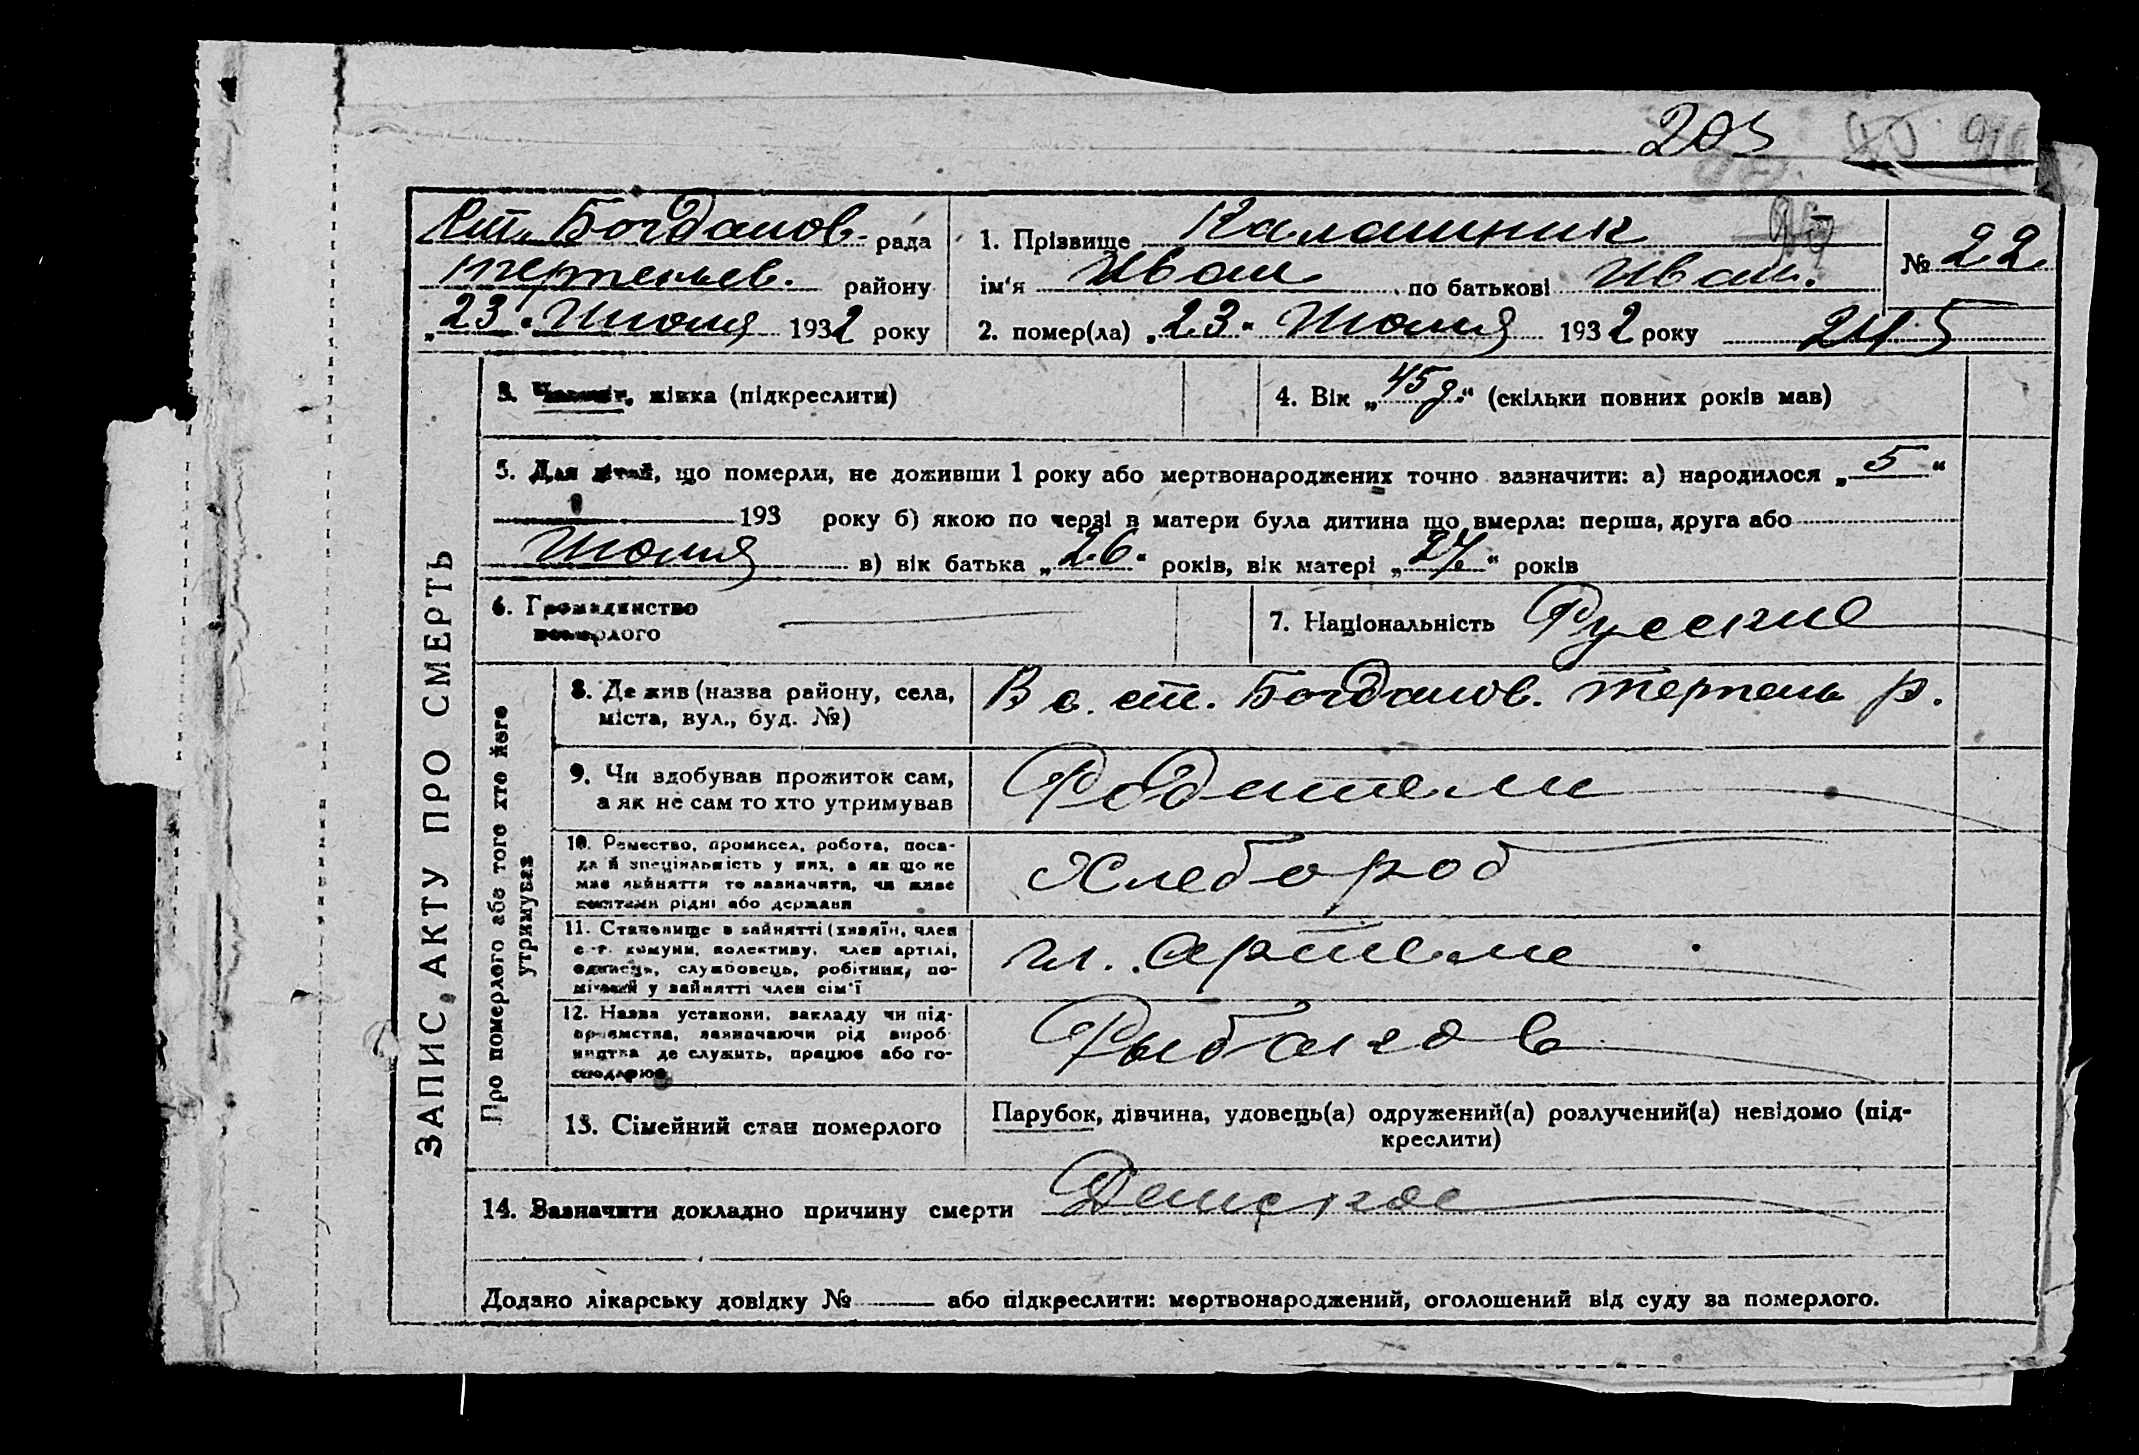 203
Ст. Богданов. рада
терпеньев. району
„23“ Июля 1932 року
1. Прізвище Калашник
ім'я Иван по батькові Иван.
№ 22
2. помер(ла) „23“ Июля 1932 року
ЗАПИС АКТУ ПРО СМЕРТЬ
3. Чоловік, жінка (підкреслити)
4. Вік „45 д.“ (скільки повних років мав)
5. Для дітей, що померли, не доживши 1 року або мертвонароджених точно зазначити: а) народилося „5“
193 року б) якою по черзі в матери була дитина що вмерла: перша, друга або
Июля в) вік батька „26“ років, вік матері „24“ років
6. Громадянство
померлого
7. Національність Русские
Про померлого або того хто його
утримував
8. Де жив (назва району, села,
міста, вул., буд. №)
В с. ст. Богданов. терпень р.
9. Чи здобував прожиток сам,
а як не сам то хто утримував
Родители
10. Ремество, промисел, робота, поса-
да й спеціяльність у них, а як що не
має заняття то зазначити, чи живе
коштами рідні або держави
Хлебороб
11. Становище в зайнятті (хазяїн, член
с.-г. комуни, колективу, член артілі,
одинець, службовець, робітник, по-
мічний у зайнятті член сім'ї
чл. артели
12. Назва установи, закладу чи під-
приємства, зазначаючи рід вироб-
ництва де служить, працює або го-
сподарює
13. Сімейний стан померлого
Парубок, дівчина, удовець(а) одружений(а) розлучений(а) невідомо (під-
креслити)
14. Зазначити докладно причину смерти Денское
Додано лікарську довідку № або підкреслити: мертвонароджений, оголошений від суду за померлого.